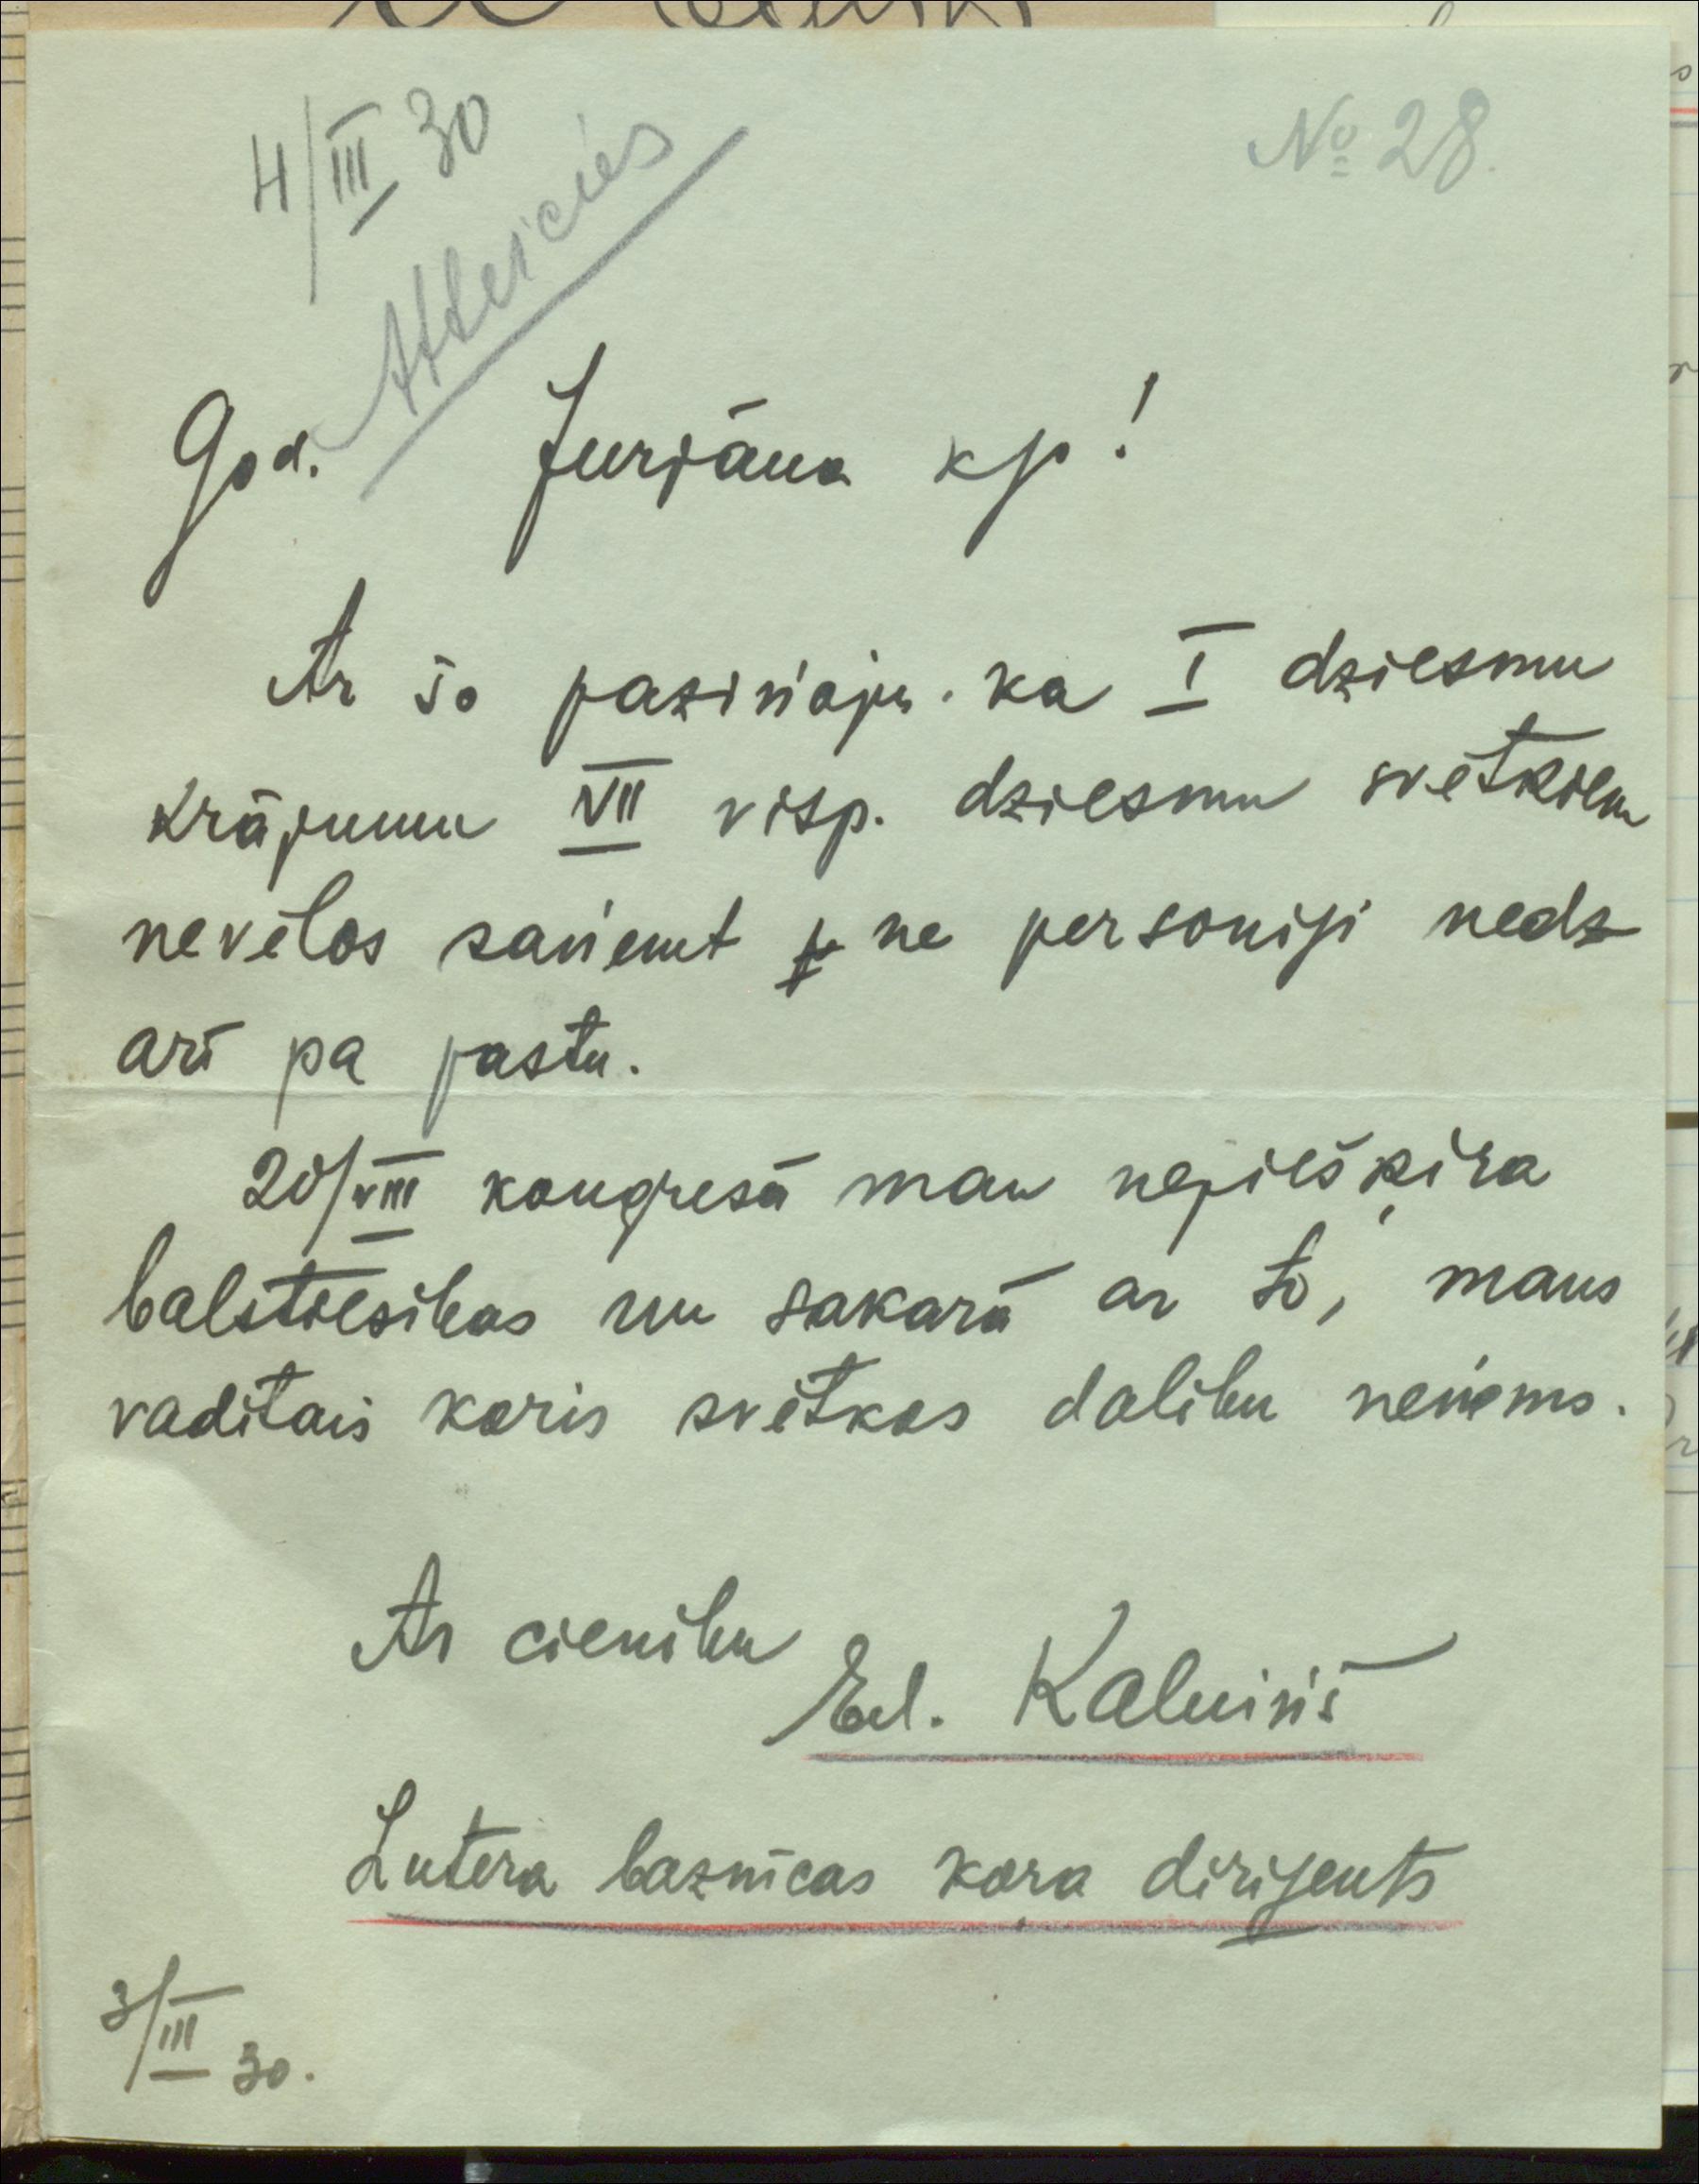 4/III 30
№ 28.
Atteicies
God. Jurjāna kgo!
Ar šo paziņoju. ka I dziesmu
krājumu VII visp. dziesmu svētkiem
nevēlos saņemt ne personigi nedz
arī pa pastu.
20/VIII kongresā man nepiešķira
balstiesibas un sakarā ar to, mans
vaditais koris svētkos dalibu neņems.
Ar cienibu
Ed. Kalniņš
Lutera baznīcas kora diriģents
3/III 30.